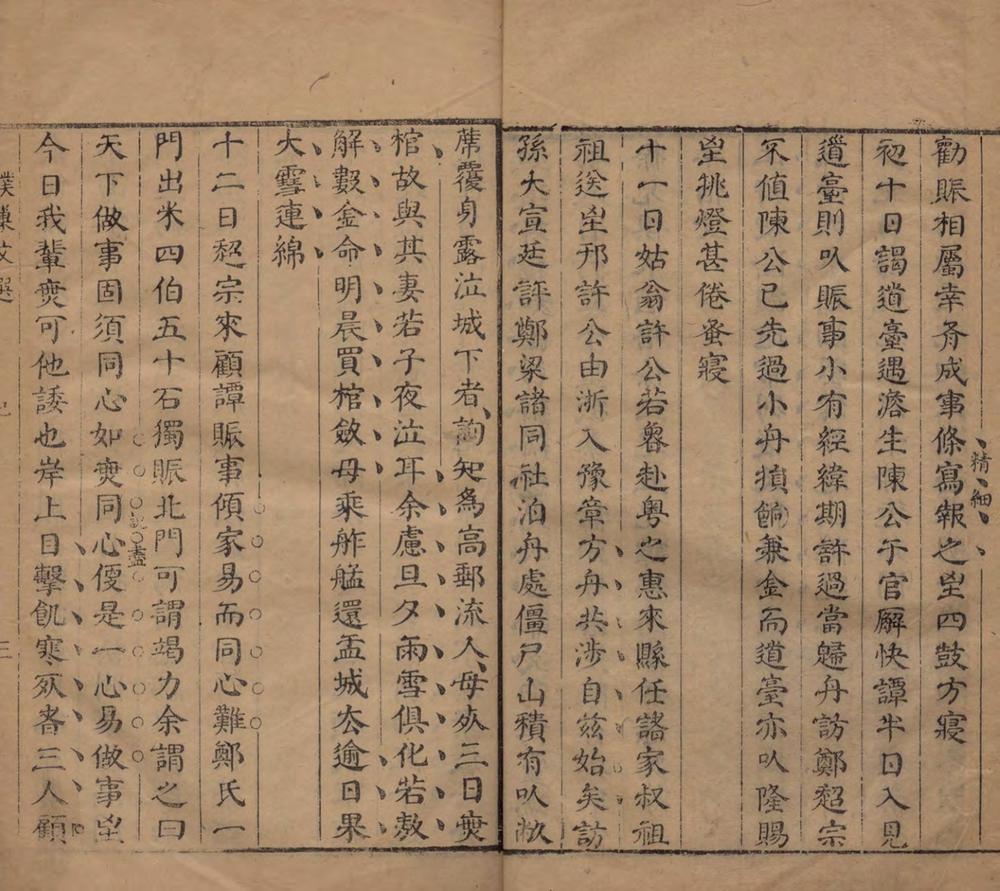 勸賑相屬幸胥成事條寫報之坐四鼓方寢
精細
初十日謁道臺遇滛生陳公于官廨快譚半日入見
道臺則㕥賑事小有經緯期許過當歸舟訪鄭超宗
不值陳公已先過小舟犒餉兼金而道臺亦㕥隆賜
坐挑燈甚倦蚤寢
十一日姑翁許公若魯赴粵之惠來縣任諸家叔祖
祖送坐邗許公由浙入豫章方舟共涉自茲始矣訪
孫大宣廷評鄭梁諸同社泊舟處僵尸山積有㕥敝
蓆覆身露泣城下者詢知為高郵流人母死三日無
棺故與其妻若子夜泣耳余慮旦夕雨雪俱化若敖
解數金命明晨買棺斂母乘舴艋還盂城厺逾日果
大雪連綿
十二日超宗來顧譚賑事傾家易而同心難鄭氏一
門出米四伯五十石獨賑北門可謂竭力余謂之曰
說盡
天下做事固須同心如無同心便是一心易做事坐
今日我輩無可他諉也岸上目擊飢寒死者三人顧
樸巢文選
三